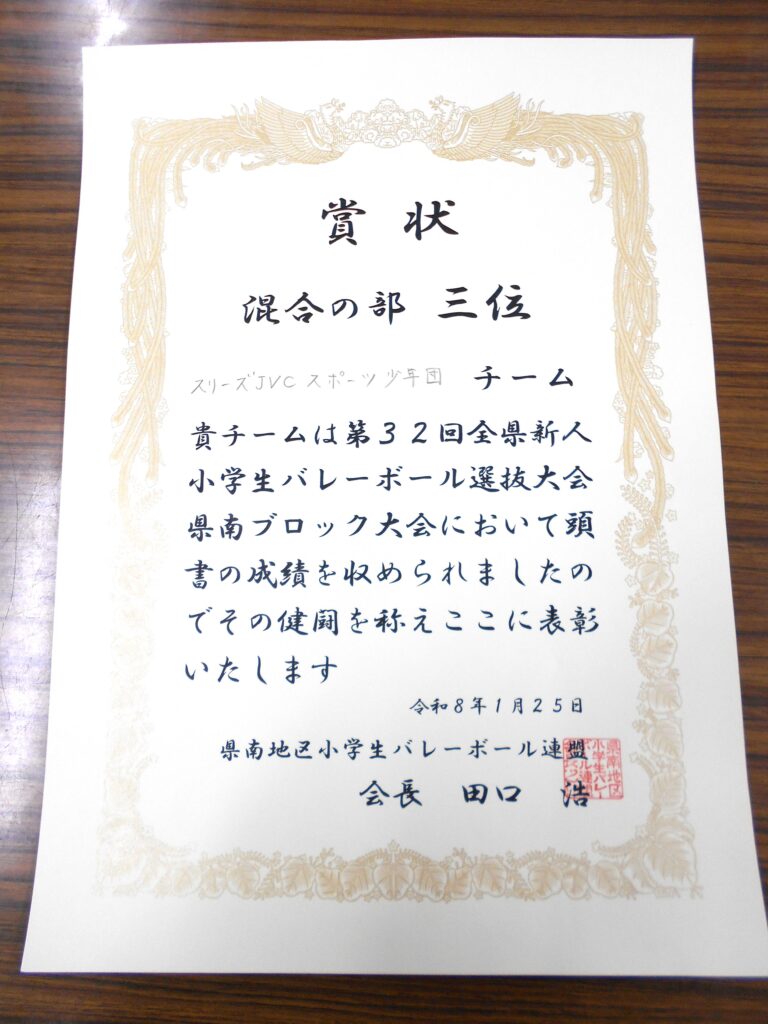 賞状
混合の部 三位
スリーズJVC スポーツ少年団 チーム
貴チームは第３２回全県新人
小学生バレーボール選抜大会
県南ブロック大会において頭
書の成績を収められましたの
でその健闘を称えここに表彰
いたします
令和８年１月２５日
県南地区小学生バレーボール連盟
会長 田口 浩
県南地区
小学生バレー